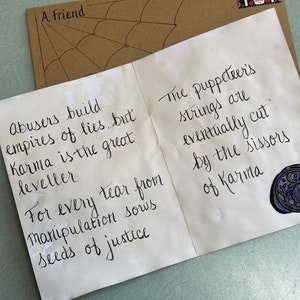 A friend
Abusers build
empires of lies but
Karma is the great
leveller
For every tear from
manipulation sows
seeds of justice
The puppeteers
strings are
eventually cut
by the sissors
of Karma